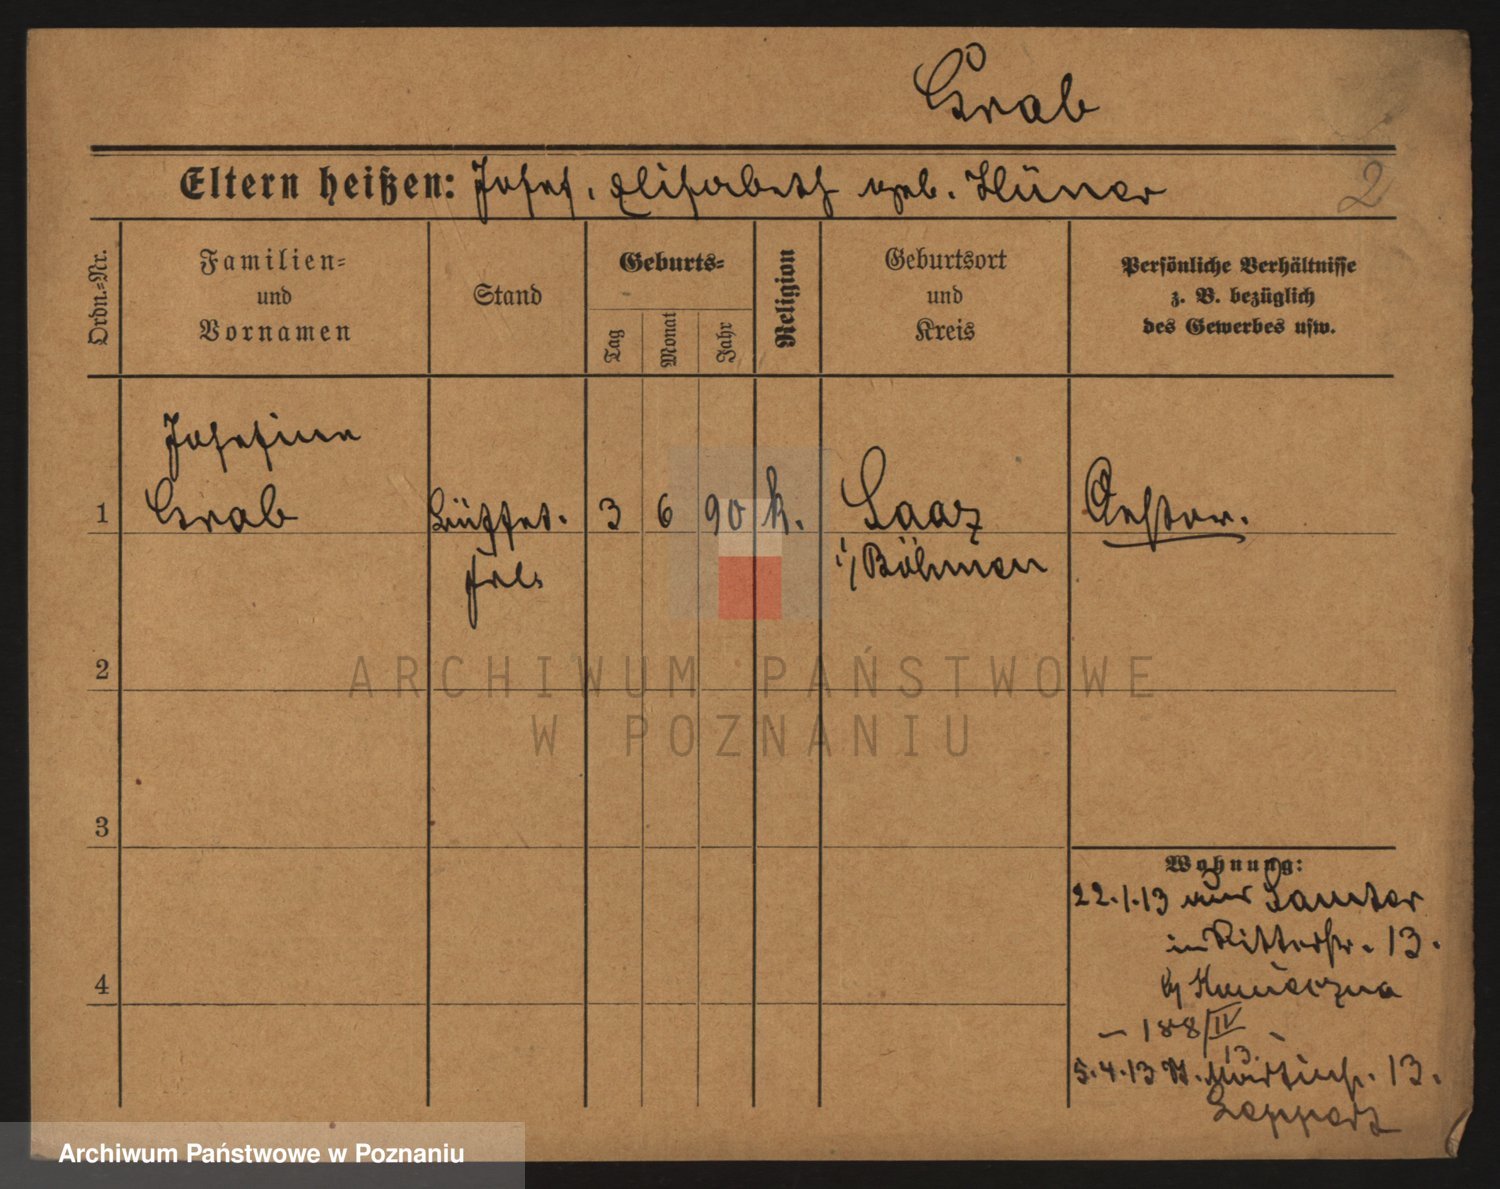 Grab
Eltern heißen: Josef, Elisabeth geb. Hüner
2
Ordn.=Nr.
Familien=
und
Vornamen
Stand
Geburts=
Tag
Monat
Jahr
Religion
Geburtsort
und
Kreis
Persönliche Verhältnisse
z. B. bezüglich
des Gewerbes usw.
Josefine
1 Grab Büffet. 3 6 90 k. Saaz Oester.
frl. i/ Böhmen
2
ARCHIWUM PAŃSTWOWE
W POZNANIU
3
Wohnung:
22.1.13 aus Samter
in Ritterstr. 13.
4
by Konieczna
– 188/IV –
13.
5.4.13 St. Martinstr. 13.
Leppert
Archiwum Państwowe w Poznaniu